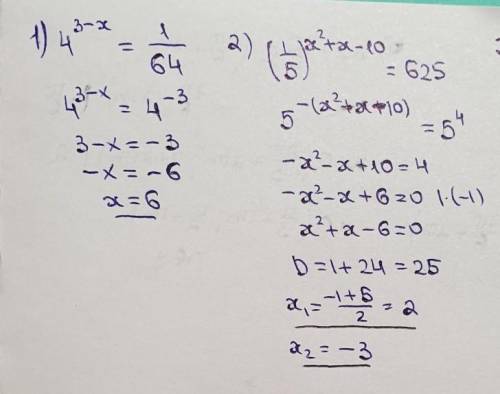 1) 4^(3-x) = 1/64
4^(3-x) = 4^(-3)
3-x = -3
-x = -6
x = 6
2) (1/5)^(x²+x-10) = 625
5^(-(x²+x-10)) = 5^4
-x²-x+10=4
-x²-x+6=0 |·(-1)
x²+x-6=0
D=1+24=25
x₁=(-1+5)/2=2
x₂=-3